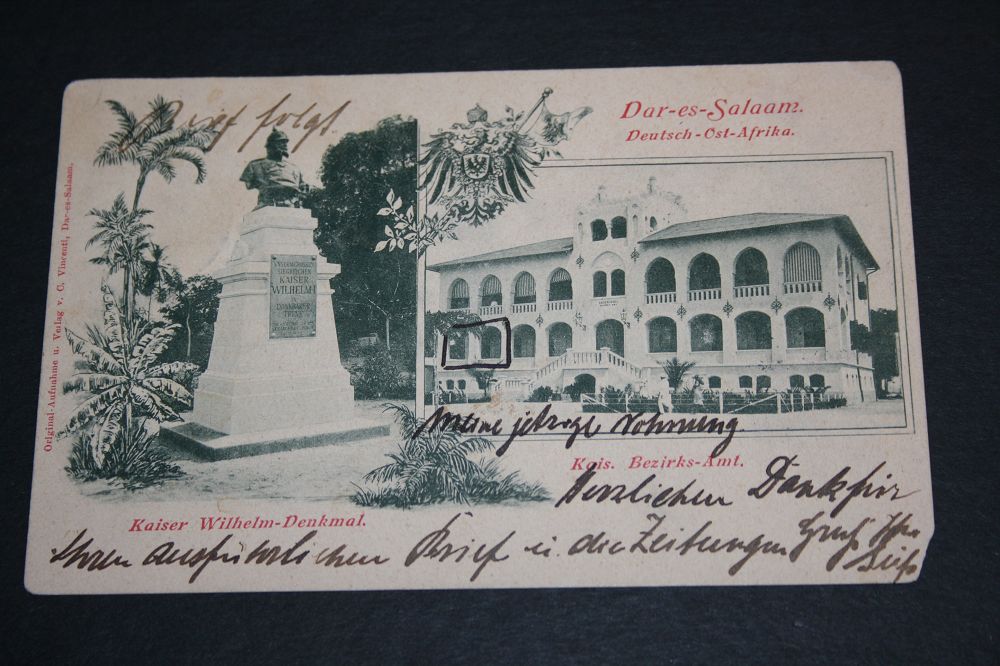 Brief folgt
Dar-es-Salaam.
Deutsch-Ost-Afrika.
Original-Aufnahme u. Verlag v. C. Vincenti, Dar-es-Salaam.
SIEGREICHEN
KAISER
WILHELM
DANKBARER
TREUE
Meine jetzige Wohnung
Kais. Bezirks-Amt.
Kaiser Wilhelm-Denkmal.
Herzlichen Dank für
Ihren ausführlichen Brief u. die Zeitungen Gruß Ihr